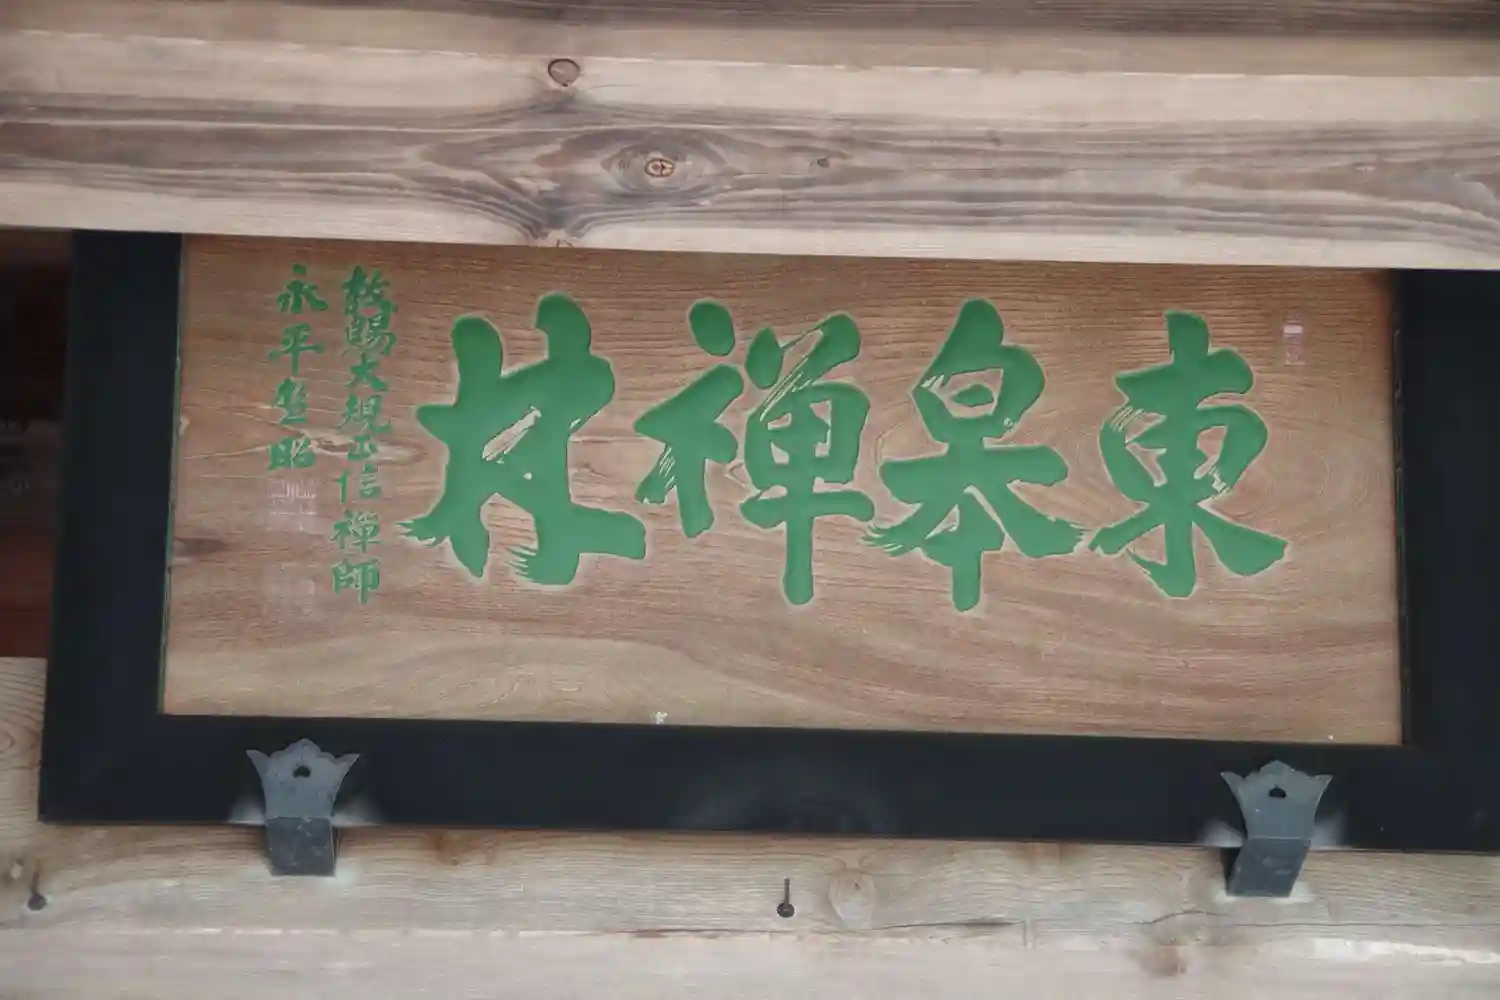 東皐禅林
敕賜大規正信禪師
永平慧昭